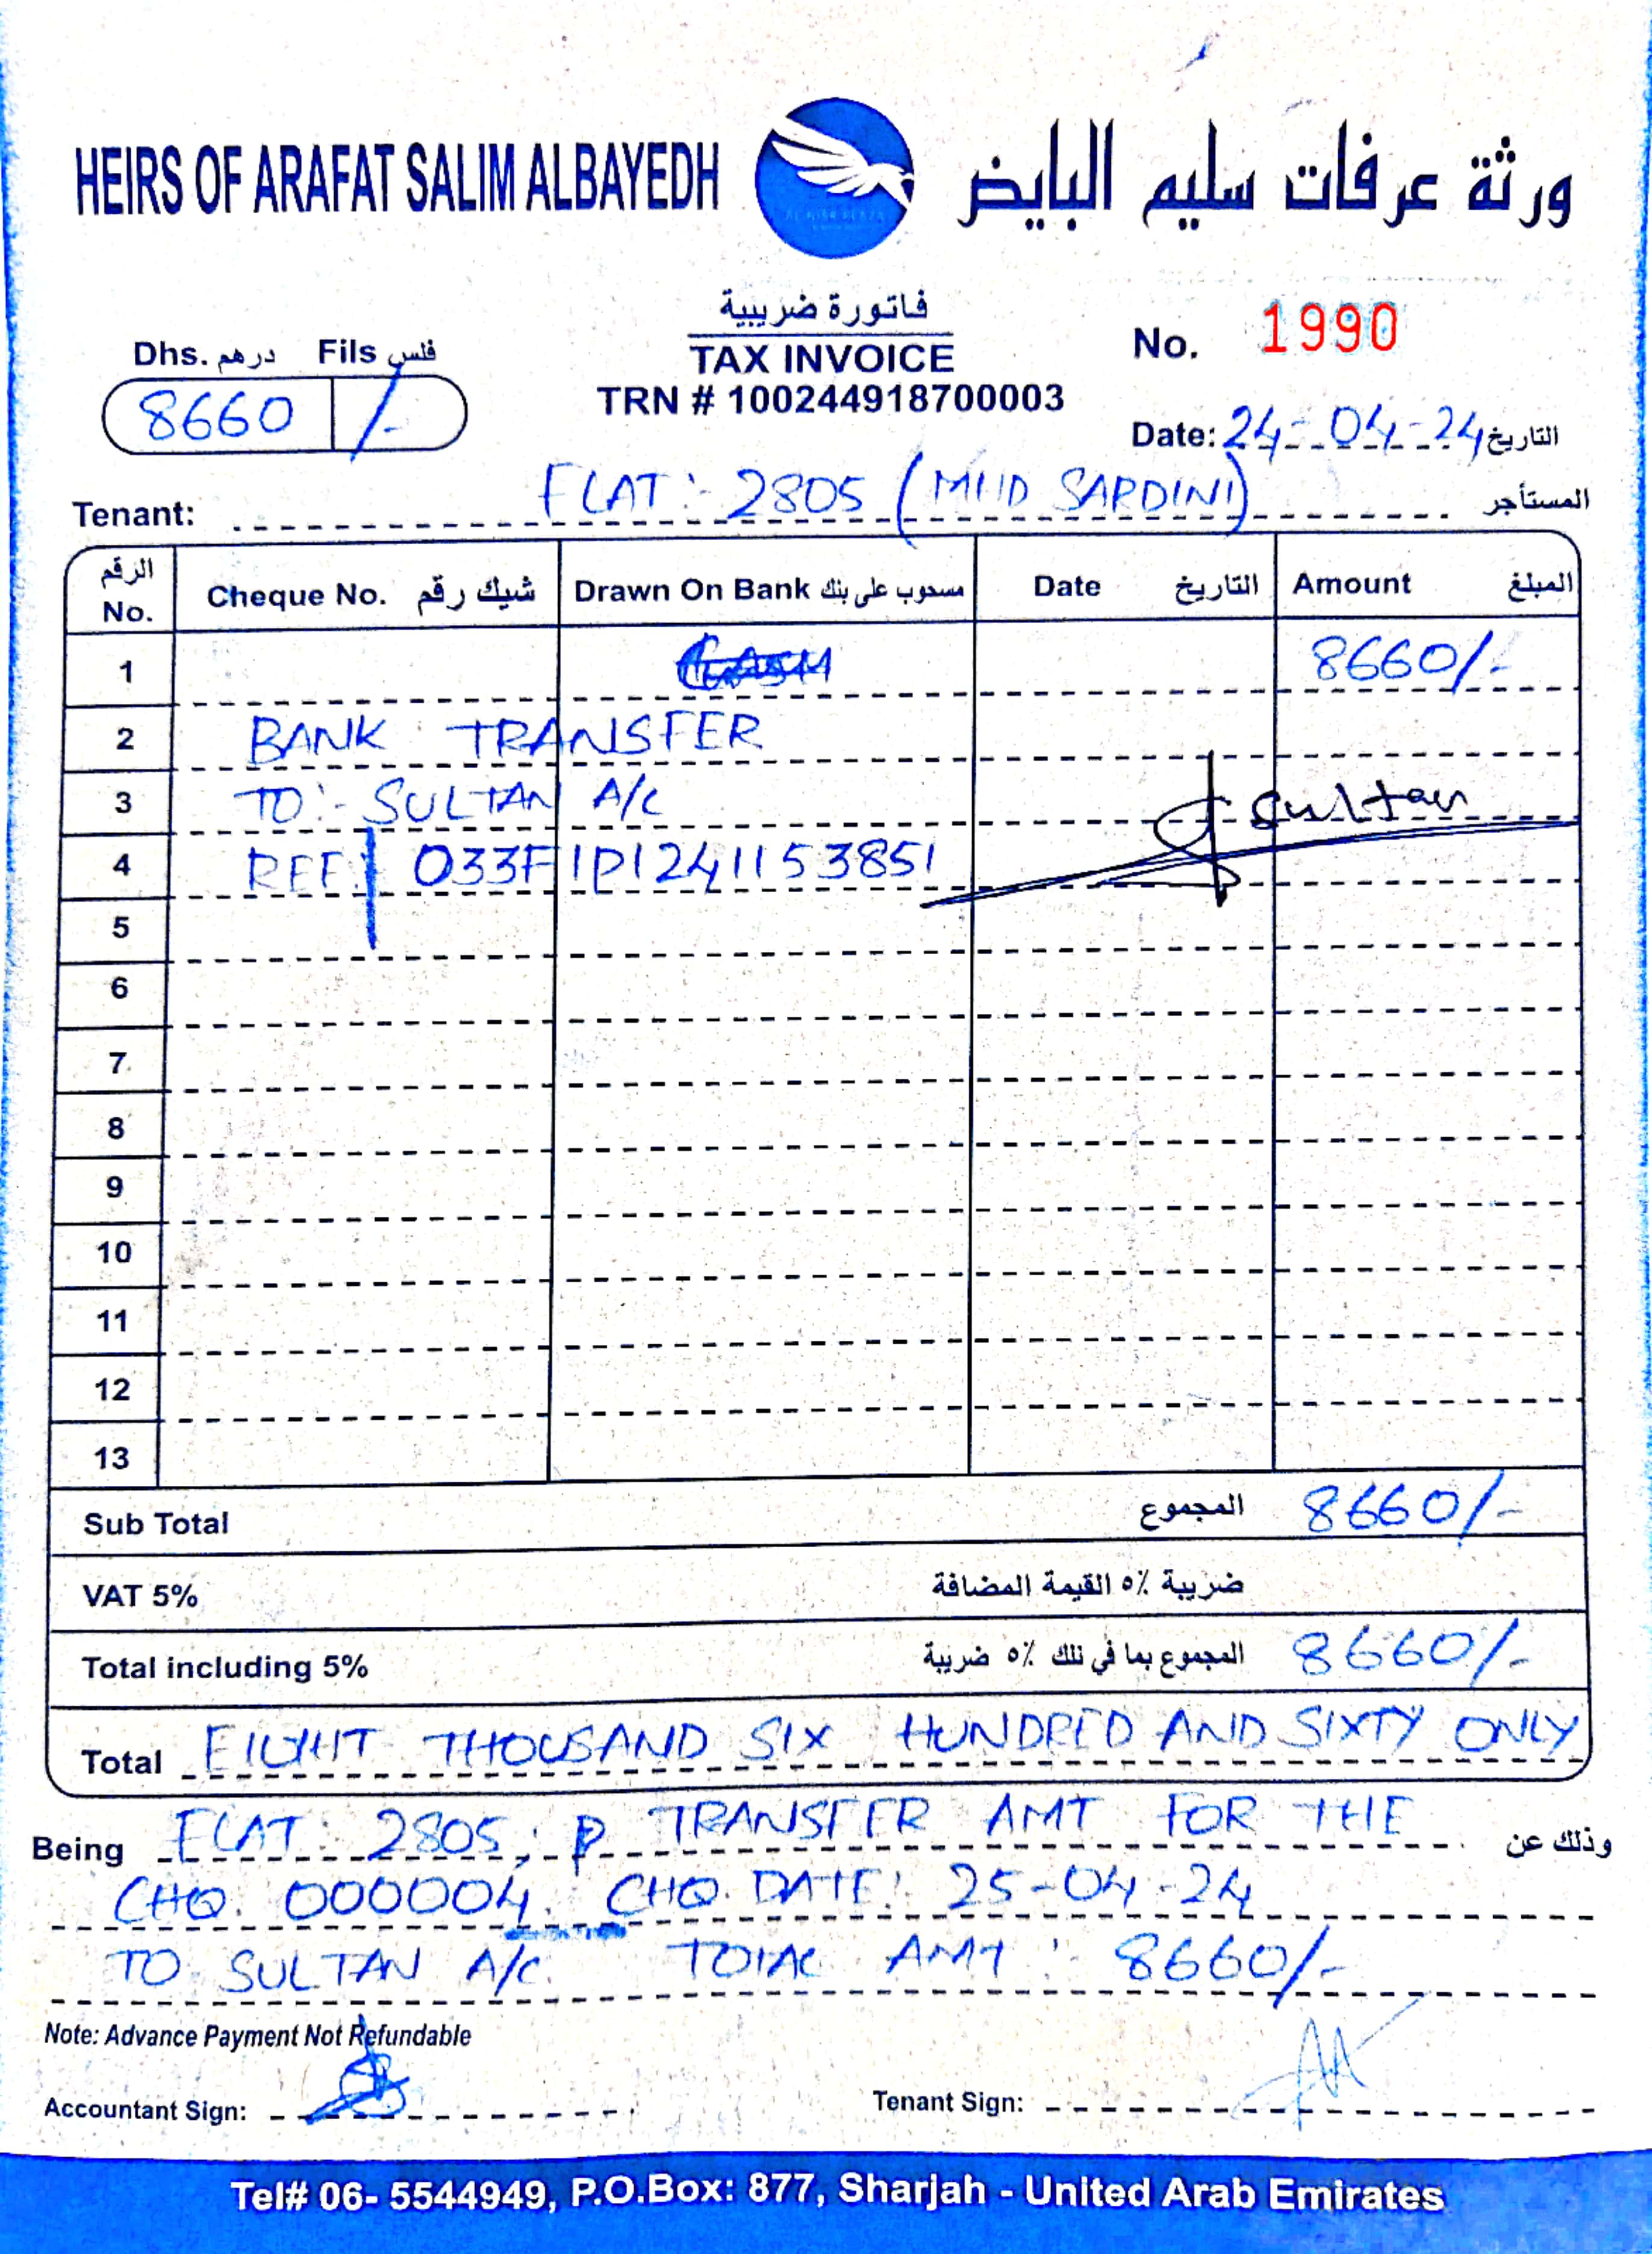 HEIRS OF ARAFAT SALIM ALBAYEDH
ورثة عرفات سليم البايض
AL NISR PLAZA
فاتورة ضريبية
TAX INVOICE
TRN # 100244918700003
Dhs. درهم Fils فلس
8660 /-
No. 1990
Date: 24-04-24 التاريخ
Tenant: FLAT:- 2805 (MHD SARDINI) المستأجر
الرقم No. Cheque No. شيك رقم Drawn On Bank مسحوب على بنك Date التاريخ Amount المبلغ
1 CASH 8660/-
2 BANK TRANSFER
3 TO:- SULTAN A/C Sultan
4 REF: 033FIPI241153851
5
6
7
8
9
10
11
12
13
Sub Total المجموع 8660/-
VAT 5% ضريبة ٥٪ القيمة المضافة
Total including 5% المجموع بما في تلك ٥٪ ضريبة 8660/-
Total EIGHT THOUSAND SIX HUNDRED AND SIXTY ONLY
Being FLAT: 2805, TRANSFER AMT FOR THE وذلك عن
CHQ. 000004. CHQ. DATE: 25-04-24
TO SULTAN A/C. TOTAL AMT: 8660/-
Note: Advance Payment Not Refundable
Accountant Sign: Tenant Sign:
Tel# 06- 5544949, P.O.Box: 877, Sharjah - United Arab Emirates